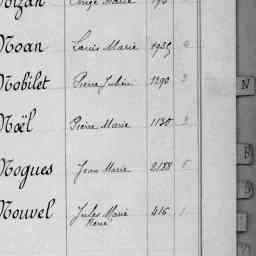 Nizan Ange Marie
Noan Louis Marie 1935
Nobilet Pierre Julien 1290 3
Noël Pierre Marie 1130 3
Nogues Jean Marie 2188 5
Nouvel Jules Marie 416 1
René
N